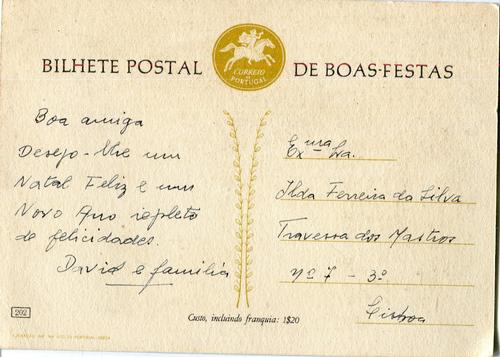 BILHETE POSTAL
CORREIO
DE
PORTUGAL
DE BOAS-FESTAS
Boa amiga
Desejo-lhe um
Natal Feliz e um
Novo Ano repleto
de felicidades.
David e família
Exma Sra.
Ilda Ferreira da Silva
Travessa dos Mastros
nº 7 - 3º
Lisboa
202
Custo, incluindo franquia: 1$20